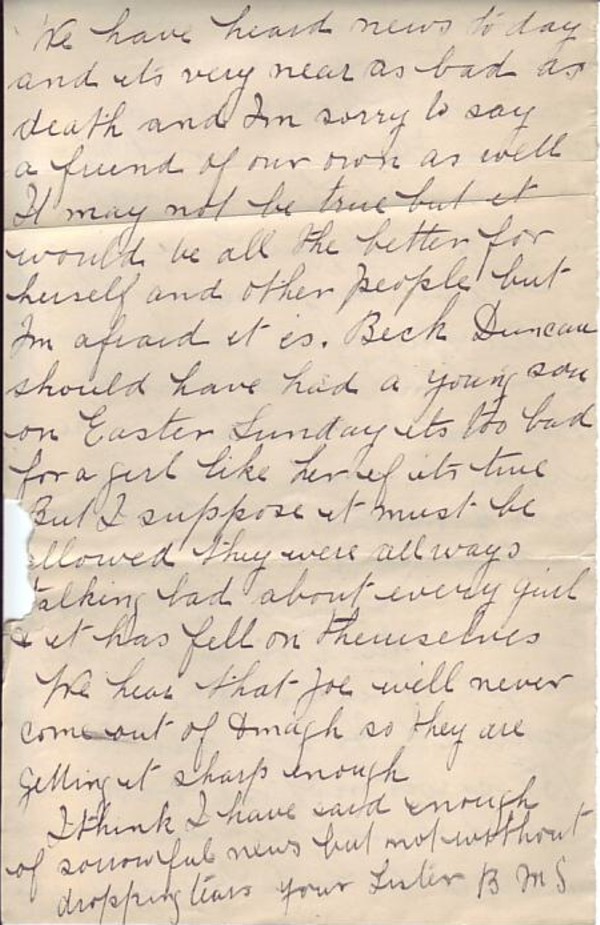 We have heard news to day
and its very near as bad as
death and Im sorry to say
a friend of our own as well
It may not be true but it
would be all the better for
herself and other people but
Im afraid it is. Beck Duncan
should have had a young son
on Easter Sunday its too bad
for a girl like her if its true
But I suppose it must be
allowed they were allways
talking bad about every girl
& it has fell on themselves
We hear that Joe will never
come out of Omagh so they are
getting it sharp enough
I think I have said enough
of sorrowful news but not without
dropping tears your Sister B McS